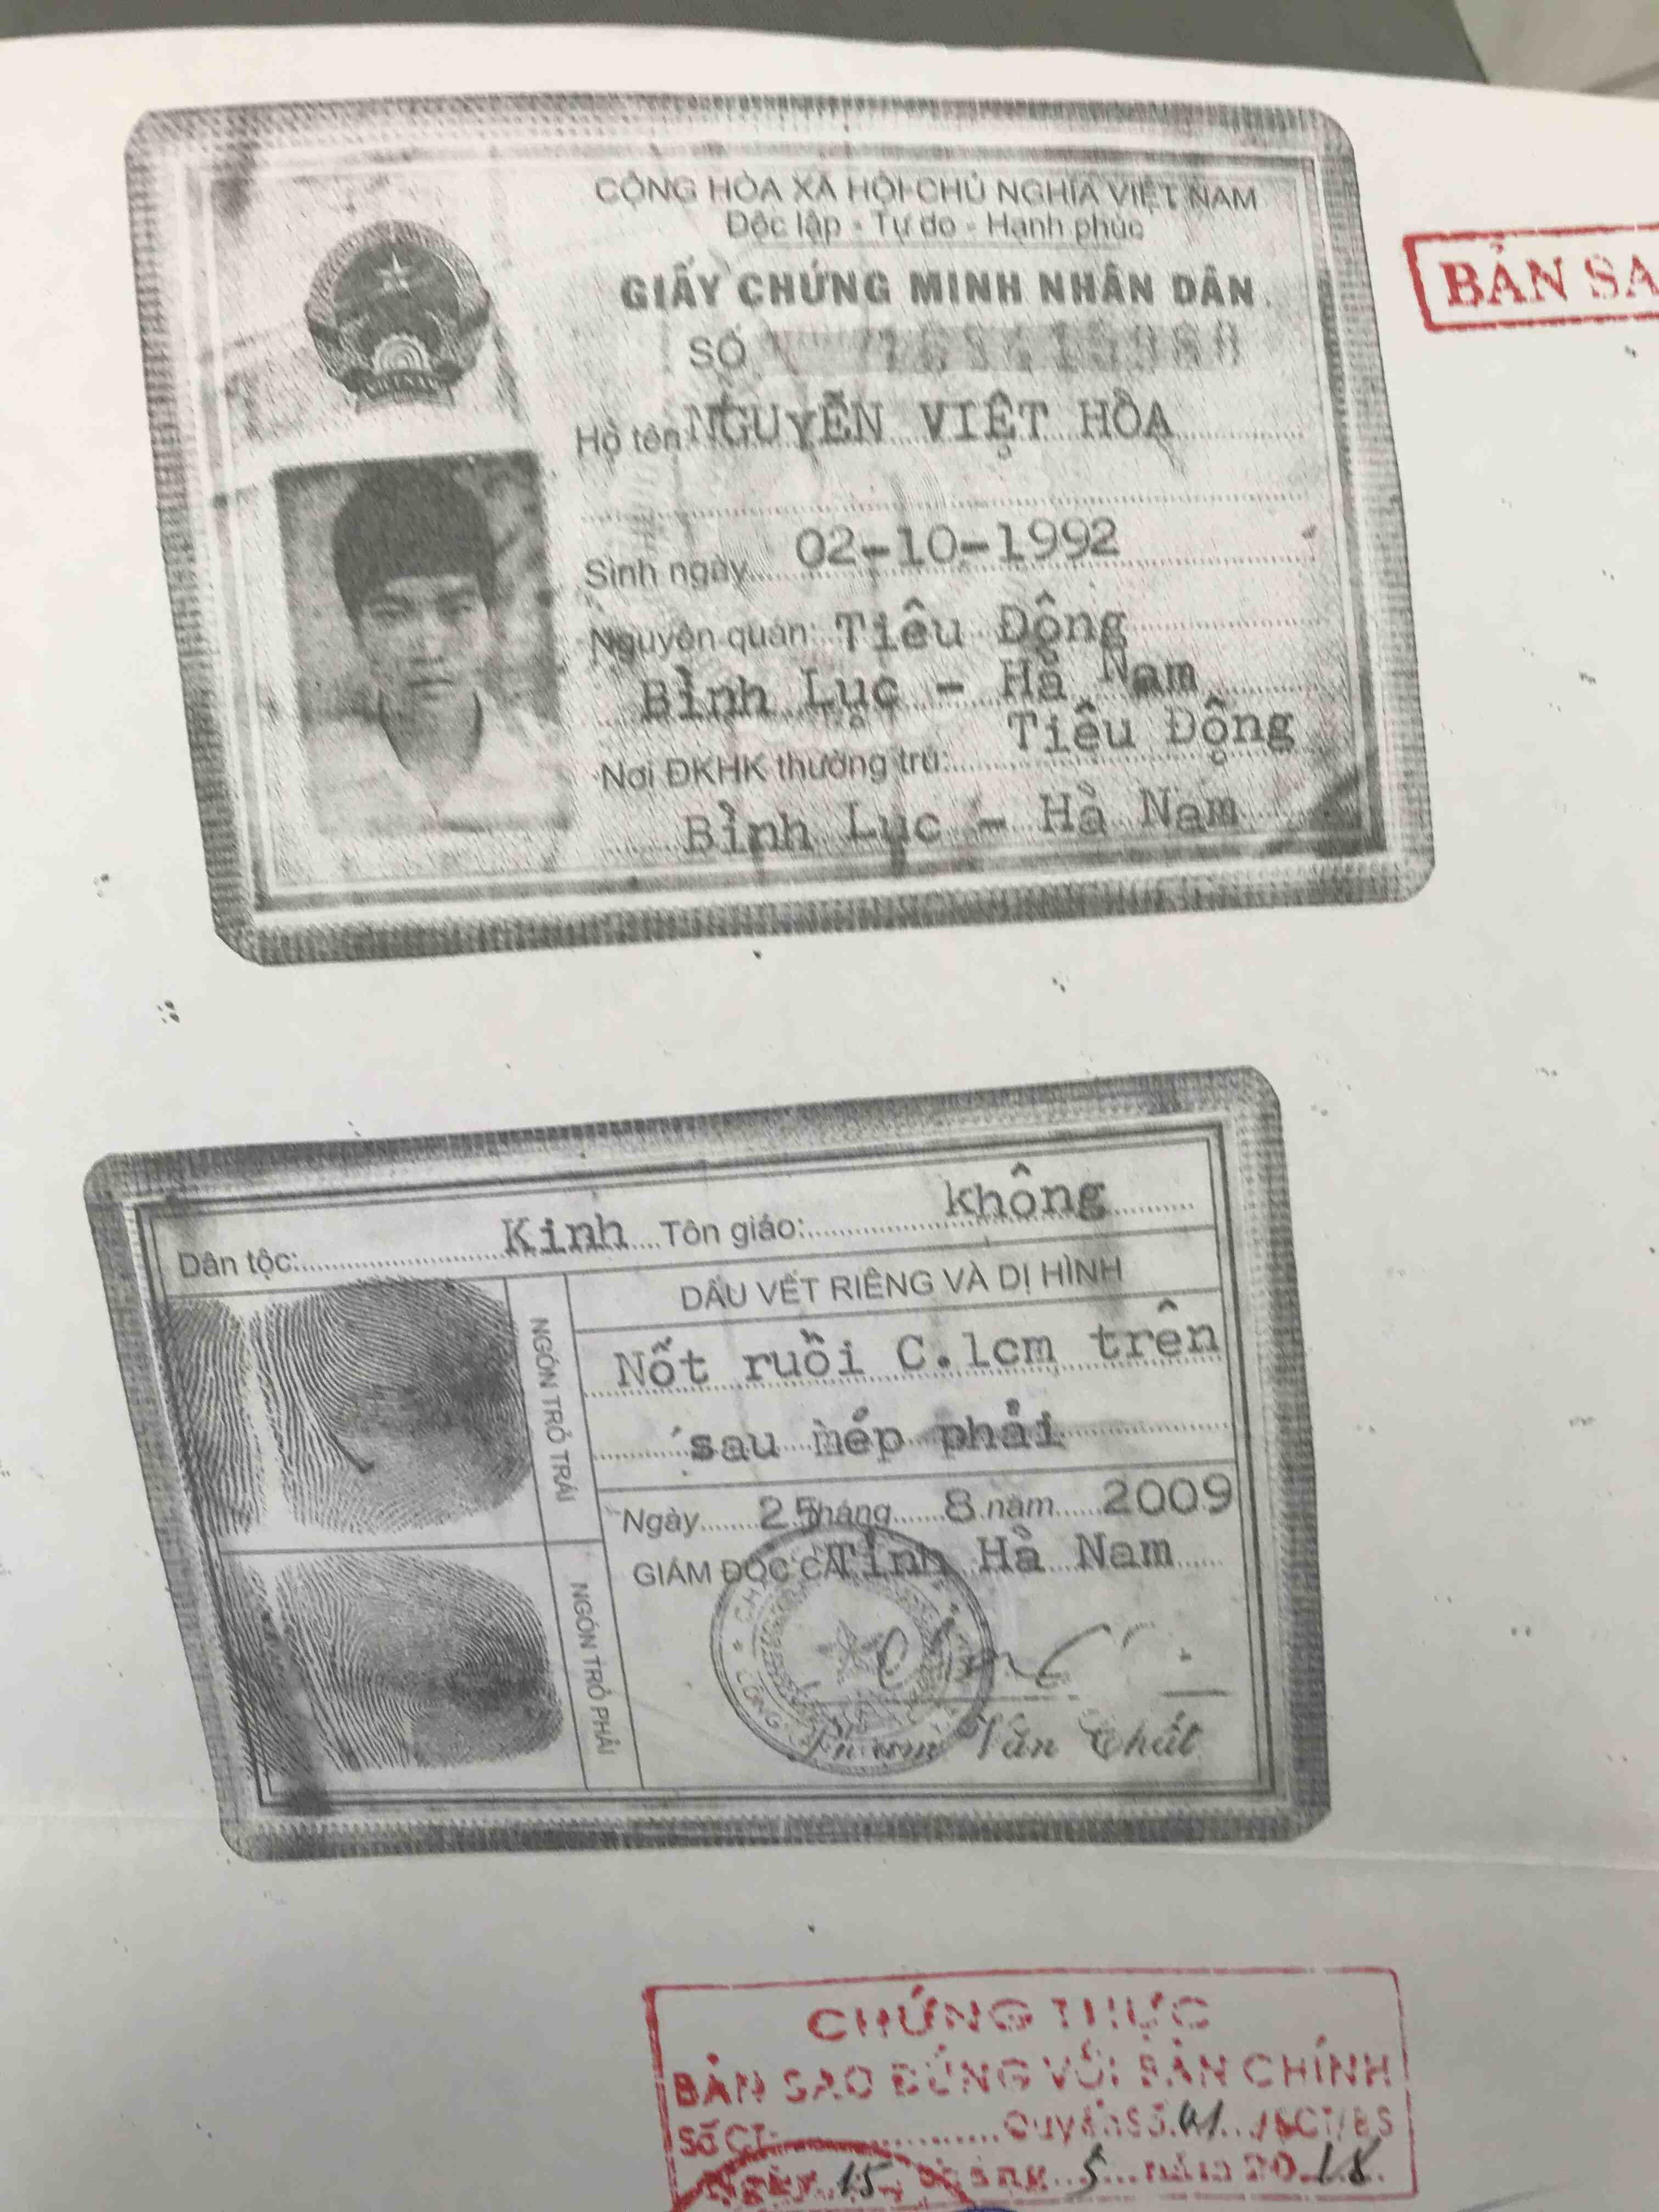 CỘNG HÒA XÃ HỘI CHỦ NGHĨA VIỆT NAM
Độc lập - Tự do - Hạnh phúc
GIẤY CHỨNG MINH NHÂN DÂN
SỐ
BẢN SA
VIETNAM
Họ tên: NGUYỄN VIỆT HÒA
Sinh ngày 02-10-1992
Nguyên quán: Tiêu Động
Bình Lục - Hà Nam
Nơi ĐKHK thường trú: Tiêu Động
Bình Lục - Hà Nam
Dân tộc: Kinh Tôn giáo: không
NGÓN TRỎ TRÁI
NGÓN TRỎ PHẢI
DẤU VẾT RIÊNG VÀ DỊ HÌNH
Nốt ruồi C.1cm trên
sau mép phải
Ngày 25 tháng 8 năm 2009
GIÁM ĐỐC CA Tỉnh Hà Nam
Văn Chất
CHỨNG THỰC
BẢN SAO ĐÚNG VỚI BẢN CHÍNH
Số CT Quyển Số 01 /SCT/BS
Ngày 15 tháng 5 năm 2018